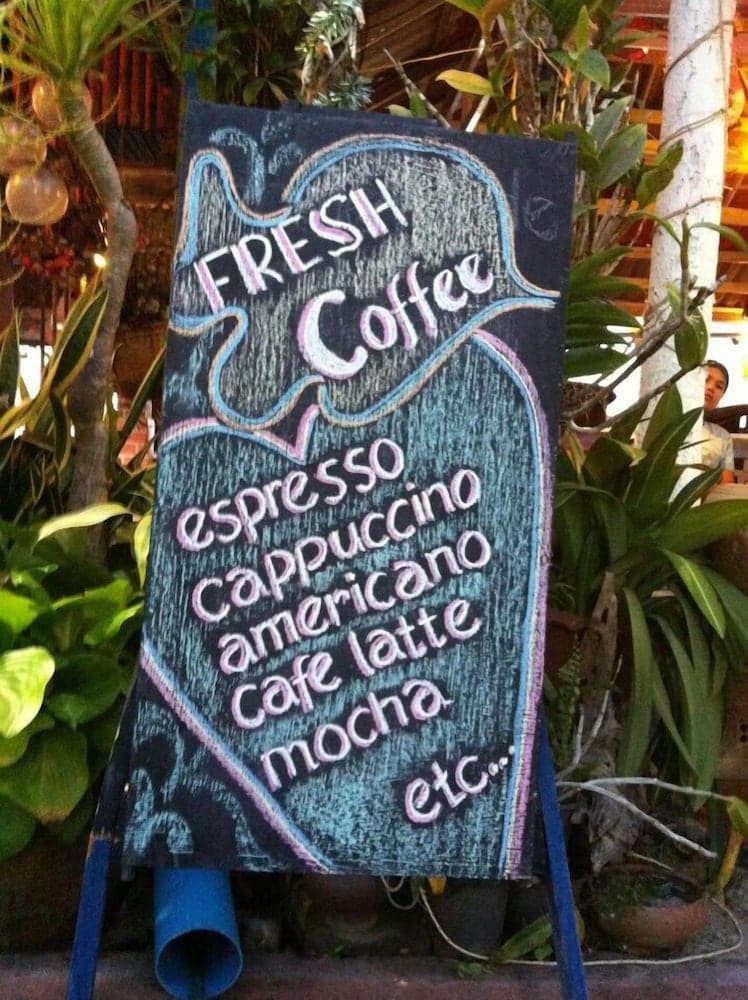 FRESH
Coffee
espresso
cappuccino
americano
cafe latte
mocha
etc...